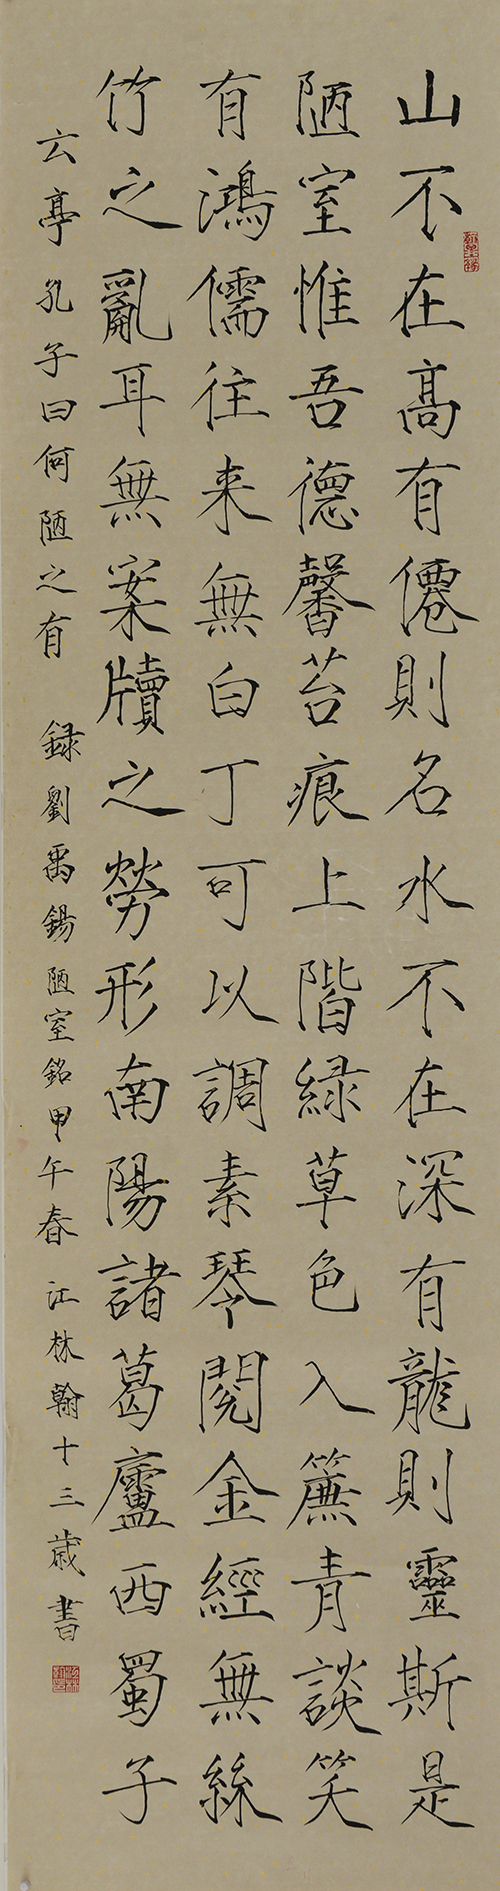 山不在高有僊則名水不在深有龍則靈斯是
陋室惟吾德馨苔痕上階緑草色入簾青談笑
有鴻儒往来無白丁可以調素琴閱金經無絲
竹之亂耳無案牘之勞形南陽諸葛廬西蜀子
云亭 孔子曰何陋之有 録劉禹錫陋室銘甲午春江林翰十三歲書